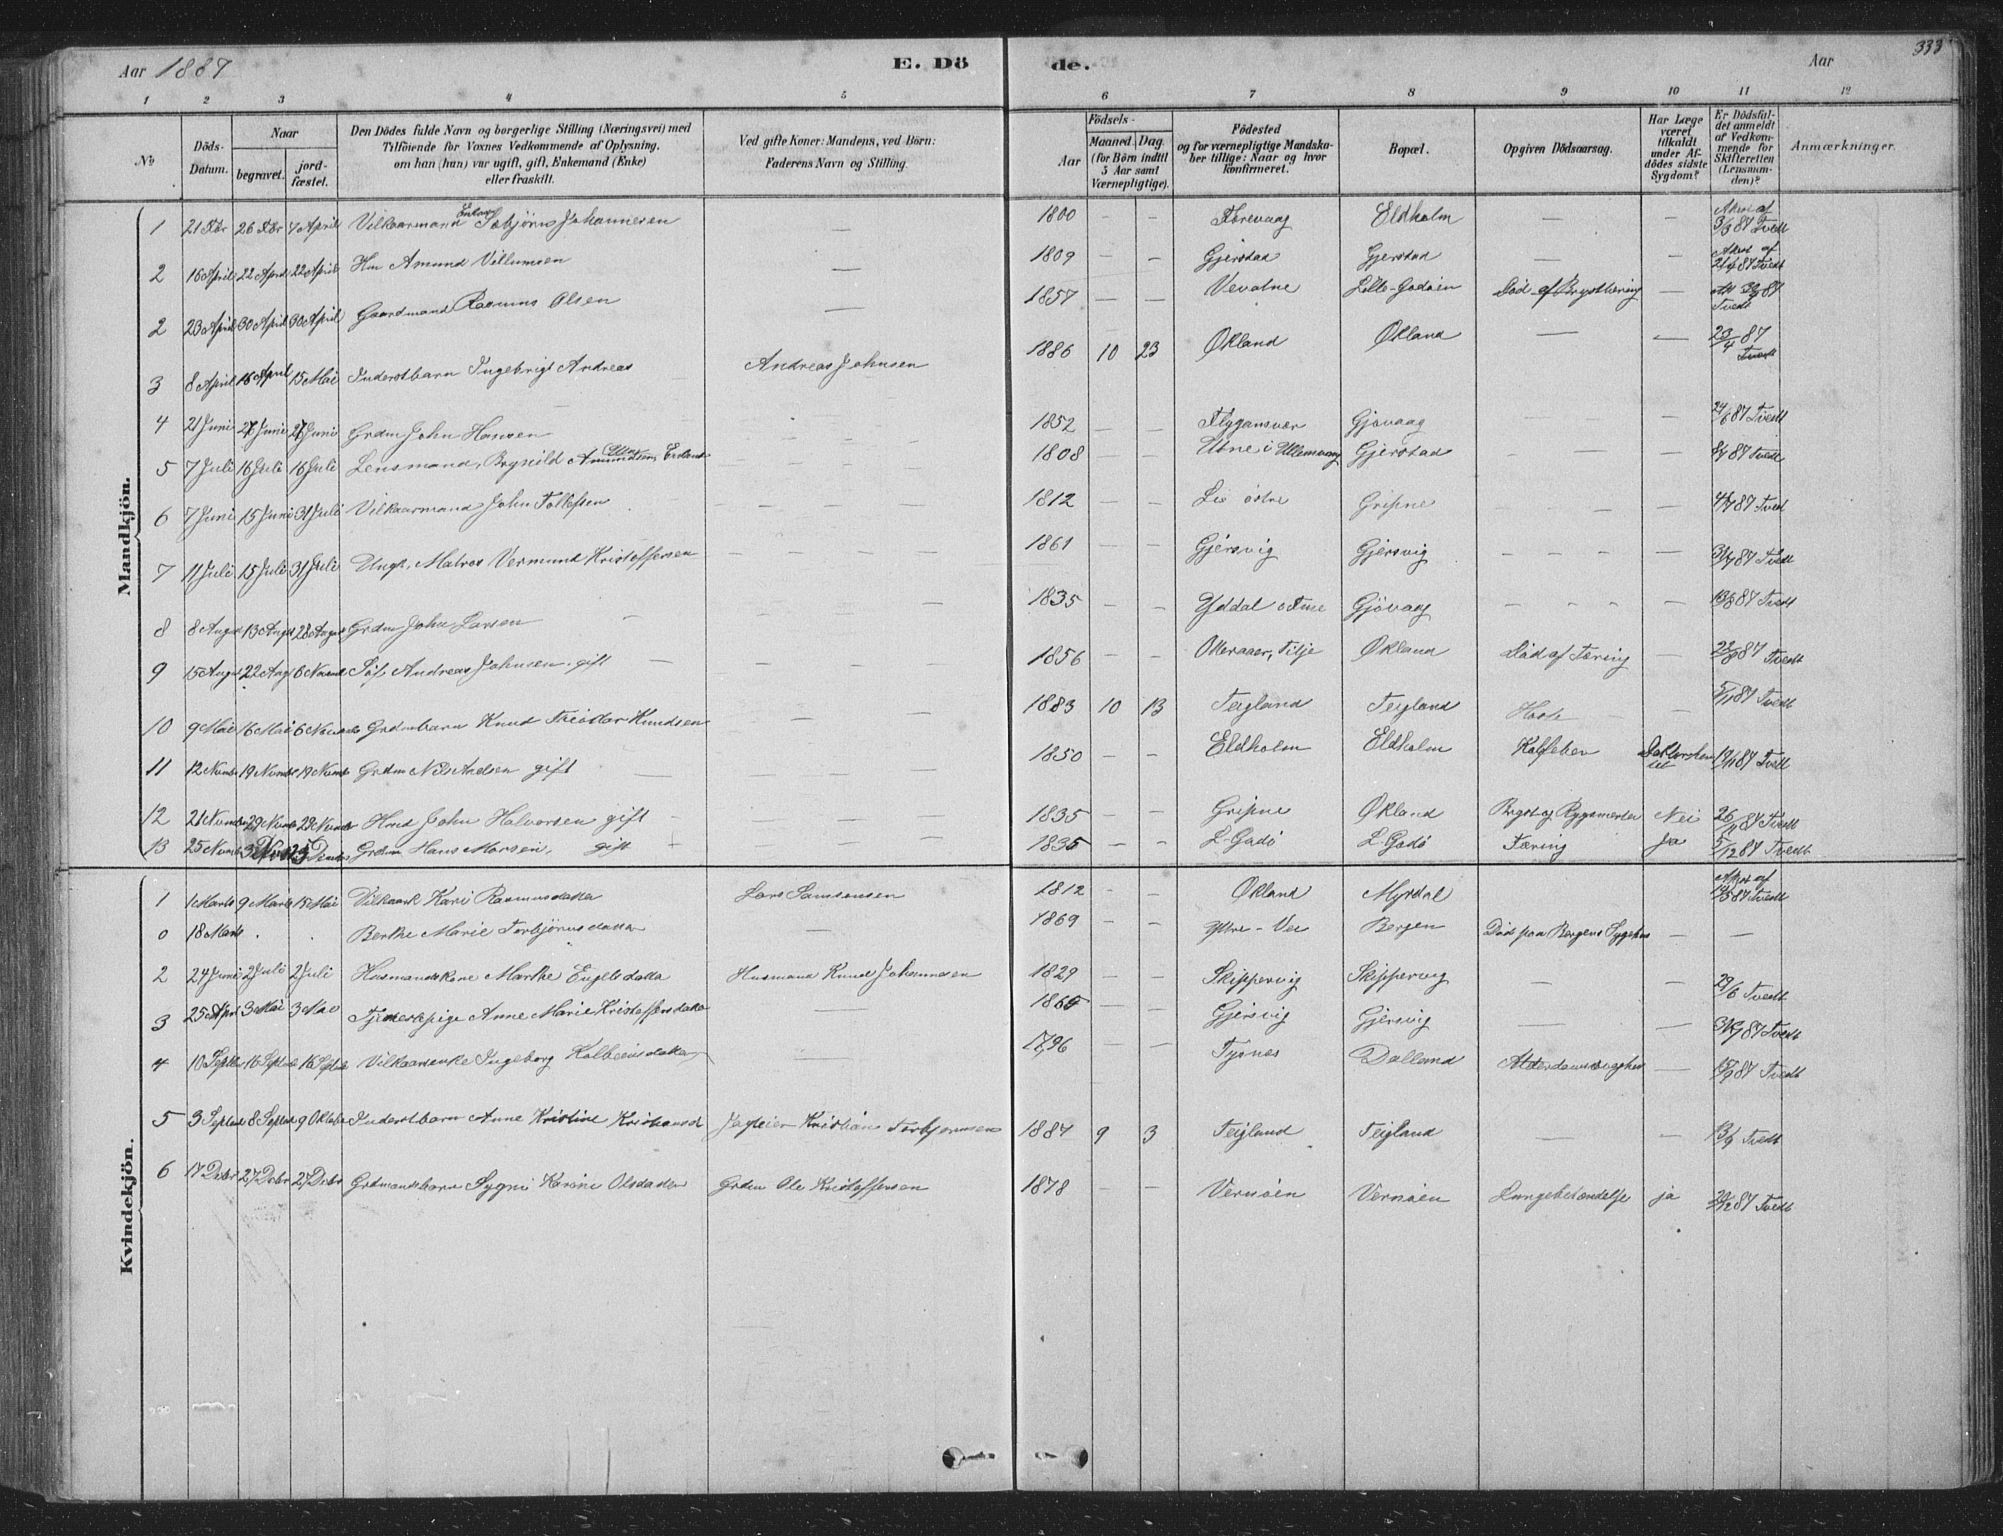 Aar 1887 E. Dö de. Aar 333
1 2 3 4 5 6 7 8 9 10 11 12
No
Döds-Datum.
Naar
begravet. jordfæstet.
Den Dödes fulde Navn og borgerlige Stilling (Næringsvei) med
Tilföiende for Voxnes Vedkommende af Oplysning,
om han (hun) var ugift, gift, Enkemand (Enke)
eller fraskilt.
Ved gifte Koner: Mandens, ved Börn:
Faderens Navn og Stilling.
Födsels-
Aar Maaned. Dag.
(for Börn indtil 5 Aar samt Værnepligtige).
Födested
og for værnepligtige Mandskaber tillige: Naar og hvor konfirmeret.
Bopæl.
Opgiven Dödsaarsag.
Har Læge været tilkaldt under Afdödes sidste Sygdom?
Er Dödsfaldet anmeldt af Vedkommende for Skifteretten (Lensmanden)?
Anmærkninger.
Mandkjön.
1 21 Fbr 26 Fbr 7 April Vilkaarmand Torbjörn Johannesen — 1800 — — Eldholm — — 3/3 87 Tvedt
2 16 April 22 April 22 April Hm Amund Villumsen — 1809 — — Gjerstad Gjerstad — — 87 Tvedt
2 23 April 30 April 30 April Gaardmand Rasmus Olsen — 1857 — — Lille-Godöen Död af — 87 Tvedt
3 8 April 16 April 15 Mai Inderstbarn Ingebrigt Andreas Andreas Johnsen 1886 10 23 Økland Økland — — 23/4 87 Tvedt
4 21 Juni 27 Juni 27 Juni Grdm John Hansen — — — 1852 — — Flygansvær Gjövaag — — 24/6 87 Tvedt
5 7 Juli 16 Juli 16 Juli Lensmand, Brynild Amundsen — — — 1808 — — Utne i Ullensvang Gjerstad — — 87 Tvedt
6 7 Juni 15 Juni 31 Juli Vilkaarmand John Tollefsen — — — 1812 — — Lie östre Gripne — — 87 Tvedt
7 11 Juli 15 Juli 31 Juli Ungk. Matros Vermund Kristoffersen — — — 1861 — — Gjersvig Gjersvig — — 87 Tvedt
8 8 August 13 August 28 August Grdm John Larsen — — — 1835 — — Yddal Gjövaag — — 87 Tvedt
9 15 August 22 Aug 6 Novemb Andreas Johnsen gift — — 1856 — — Økland Död af Tæring — 22/8 87 Tvedt
10 9 Mai 16 Mai 6 Novemb Grdmbarn Knud Knudsen — — 1883 10 13 Teigland Teigland — 5/11 87 Tvedt
11 12 Novembr 19 Novbr 19 Novbr Grdm Nils gift — — 1850 — — Eldholm Eldholm 19/11 87 Tvedt
12 21 Novembr 29 Novbr 29 Novbr Hmd John Halvorsen gift — — 1835 — — Gripne Økland Bryst og Nei 26/11 87 Tvedt
13 25 Novembr Grdm Hans gift — — 1835 — — L-Godö L-Godö Tæring Ja 5/12 87 Tvedt
Kvindekjön.
1 1 Marts 9 Marts 15 Mai Vilkaark Kari Rasmusdatter Lars Samsonsen 1812 — — Økland Myrdal Tvedt
0 18 Marts . . Berthe Marie Torbjörnsdatter 1869 — — Ytre-Vee Bergen Död paa Bergens Sygehus — —
2 24 Juni 2 Juli 2 Juli Husmandskone Marthe Husmand Knud Johannesen 1829 — — Skippervig Skippervig — — 29/6 Tvedt
3 25 April 3 Mai 3 Mai Tjenestepige Anne Marie Kristoffersdatter — 1865 — — Gjersvig Gjersvig — — 87 Tvedt
4 10 Septbr 16 Septbr 16 Septbr Vilkaarsenke Ingeborg Kolbeinsdatter — 1796 — — Tysnes Dalland — 87 Tvedt
5 3 Septbr 8 Septbr 9 Oktober Inderstbarn Anne Kristine Kristiansd Kristian Torbjörnsen 1887 9 3 Teigland Teigland — — 13/9 Tvedt
6 17 Decbr 27 Decbr 27 Decbr Grdmandsbarn Sygni Karine Olsdatter Grdm Ole Kristoffersen 1878 — — Vernöen Vernöen Lungebetændelse ja 87 Tvedt